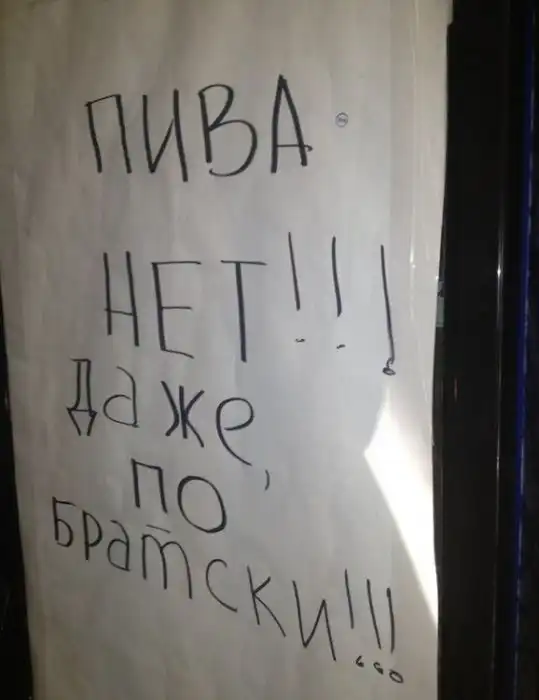 ПИВА
НЕТ!!!
Даже,
ПО
Братски!!!